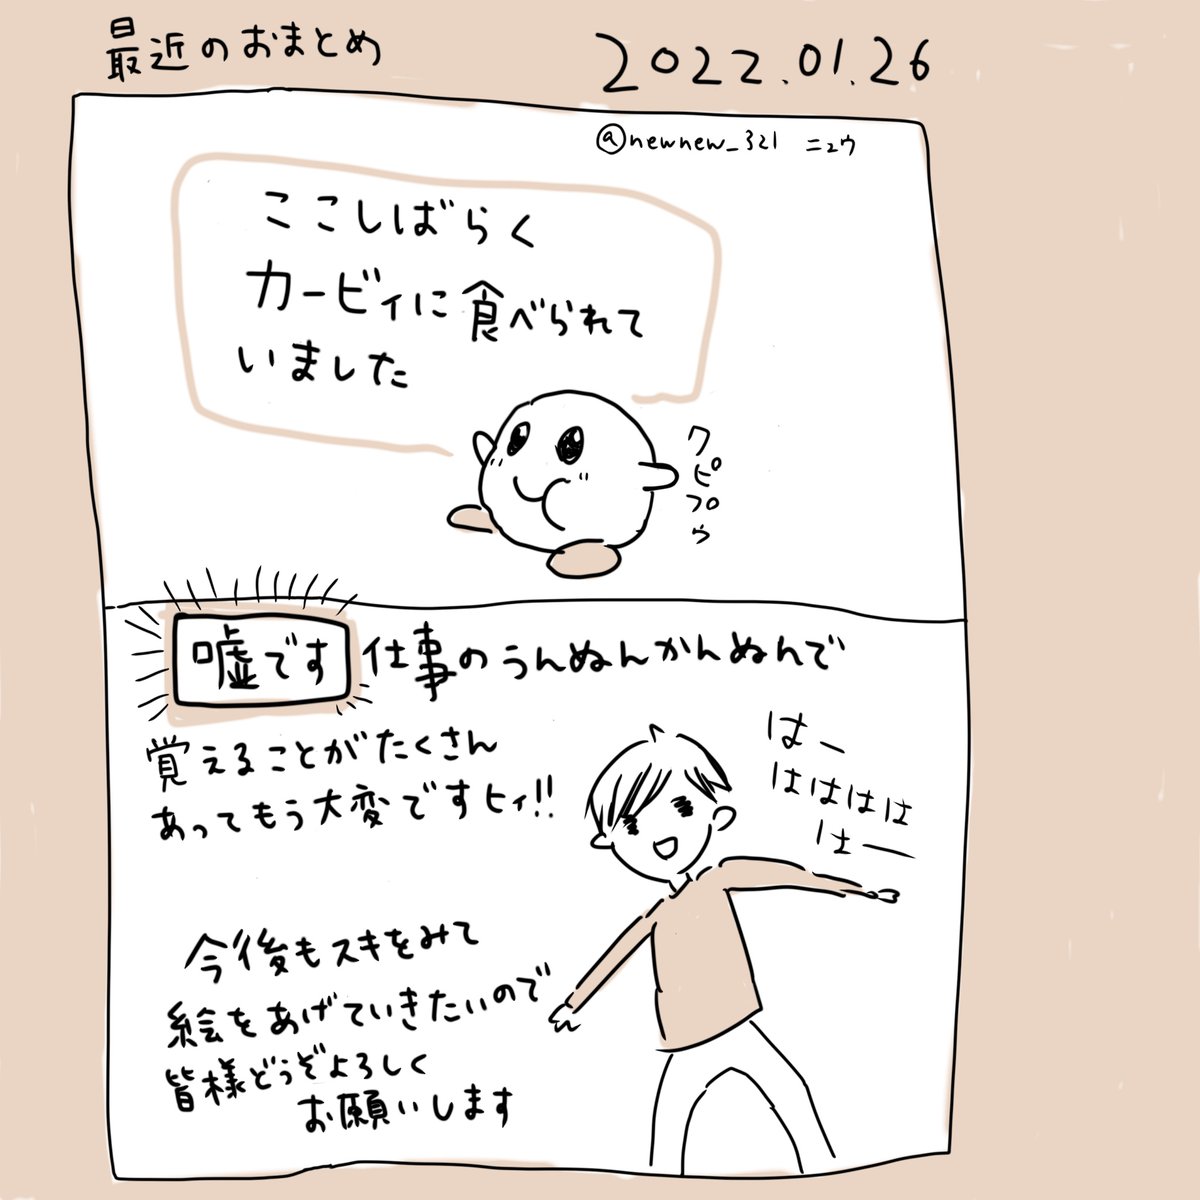 最近のおまとめ
2022.01.26
@newnew_321 ニュウ
ここしばらく
カービィに食べられて
いました
クピプゥ
嘘です 仕事のうんぬんかんぬんで
覚えることがたくさん
あってもう大変ですヒィ!!
はー
はははは
はー
今後もスキをみて
絵をあげていきたいので
皆様どうぞよろしく
お願いします